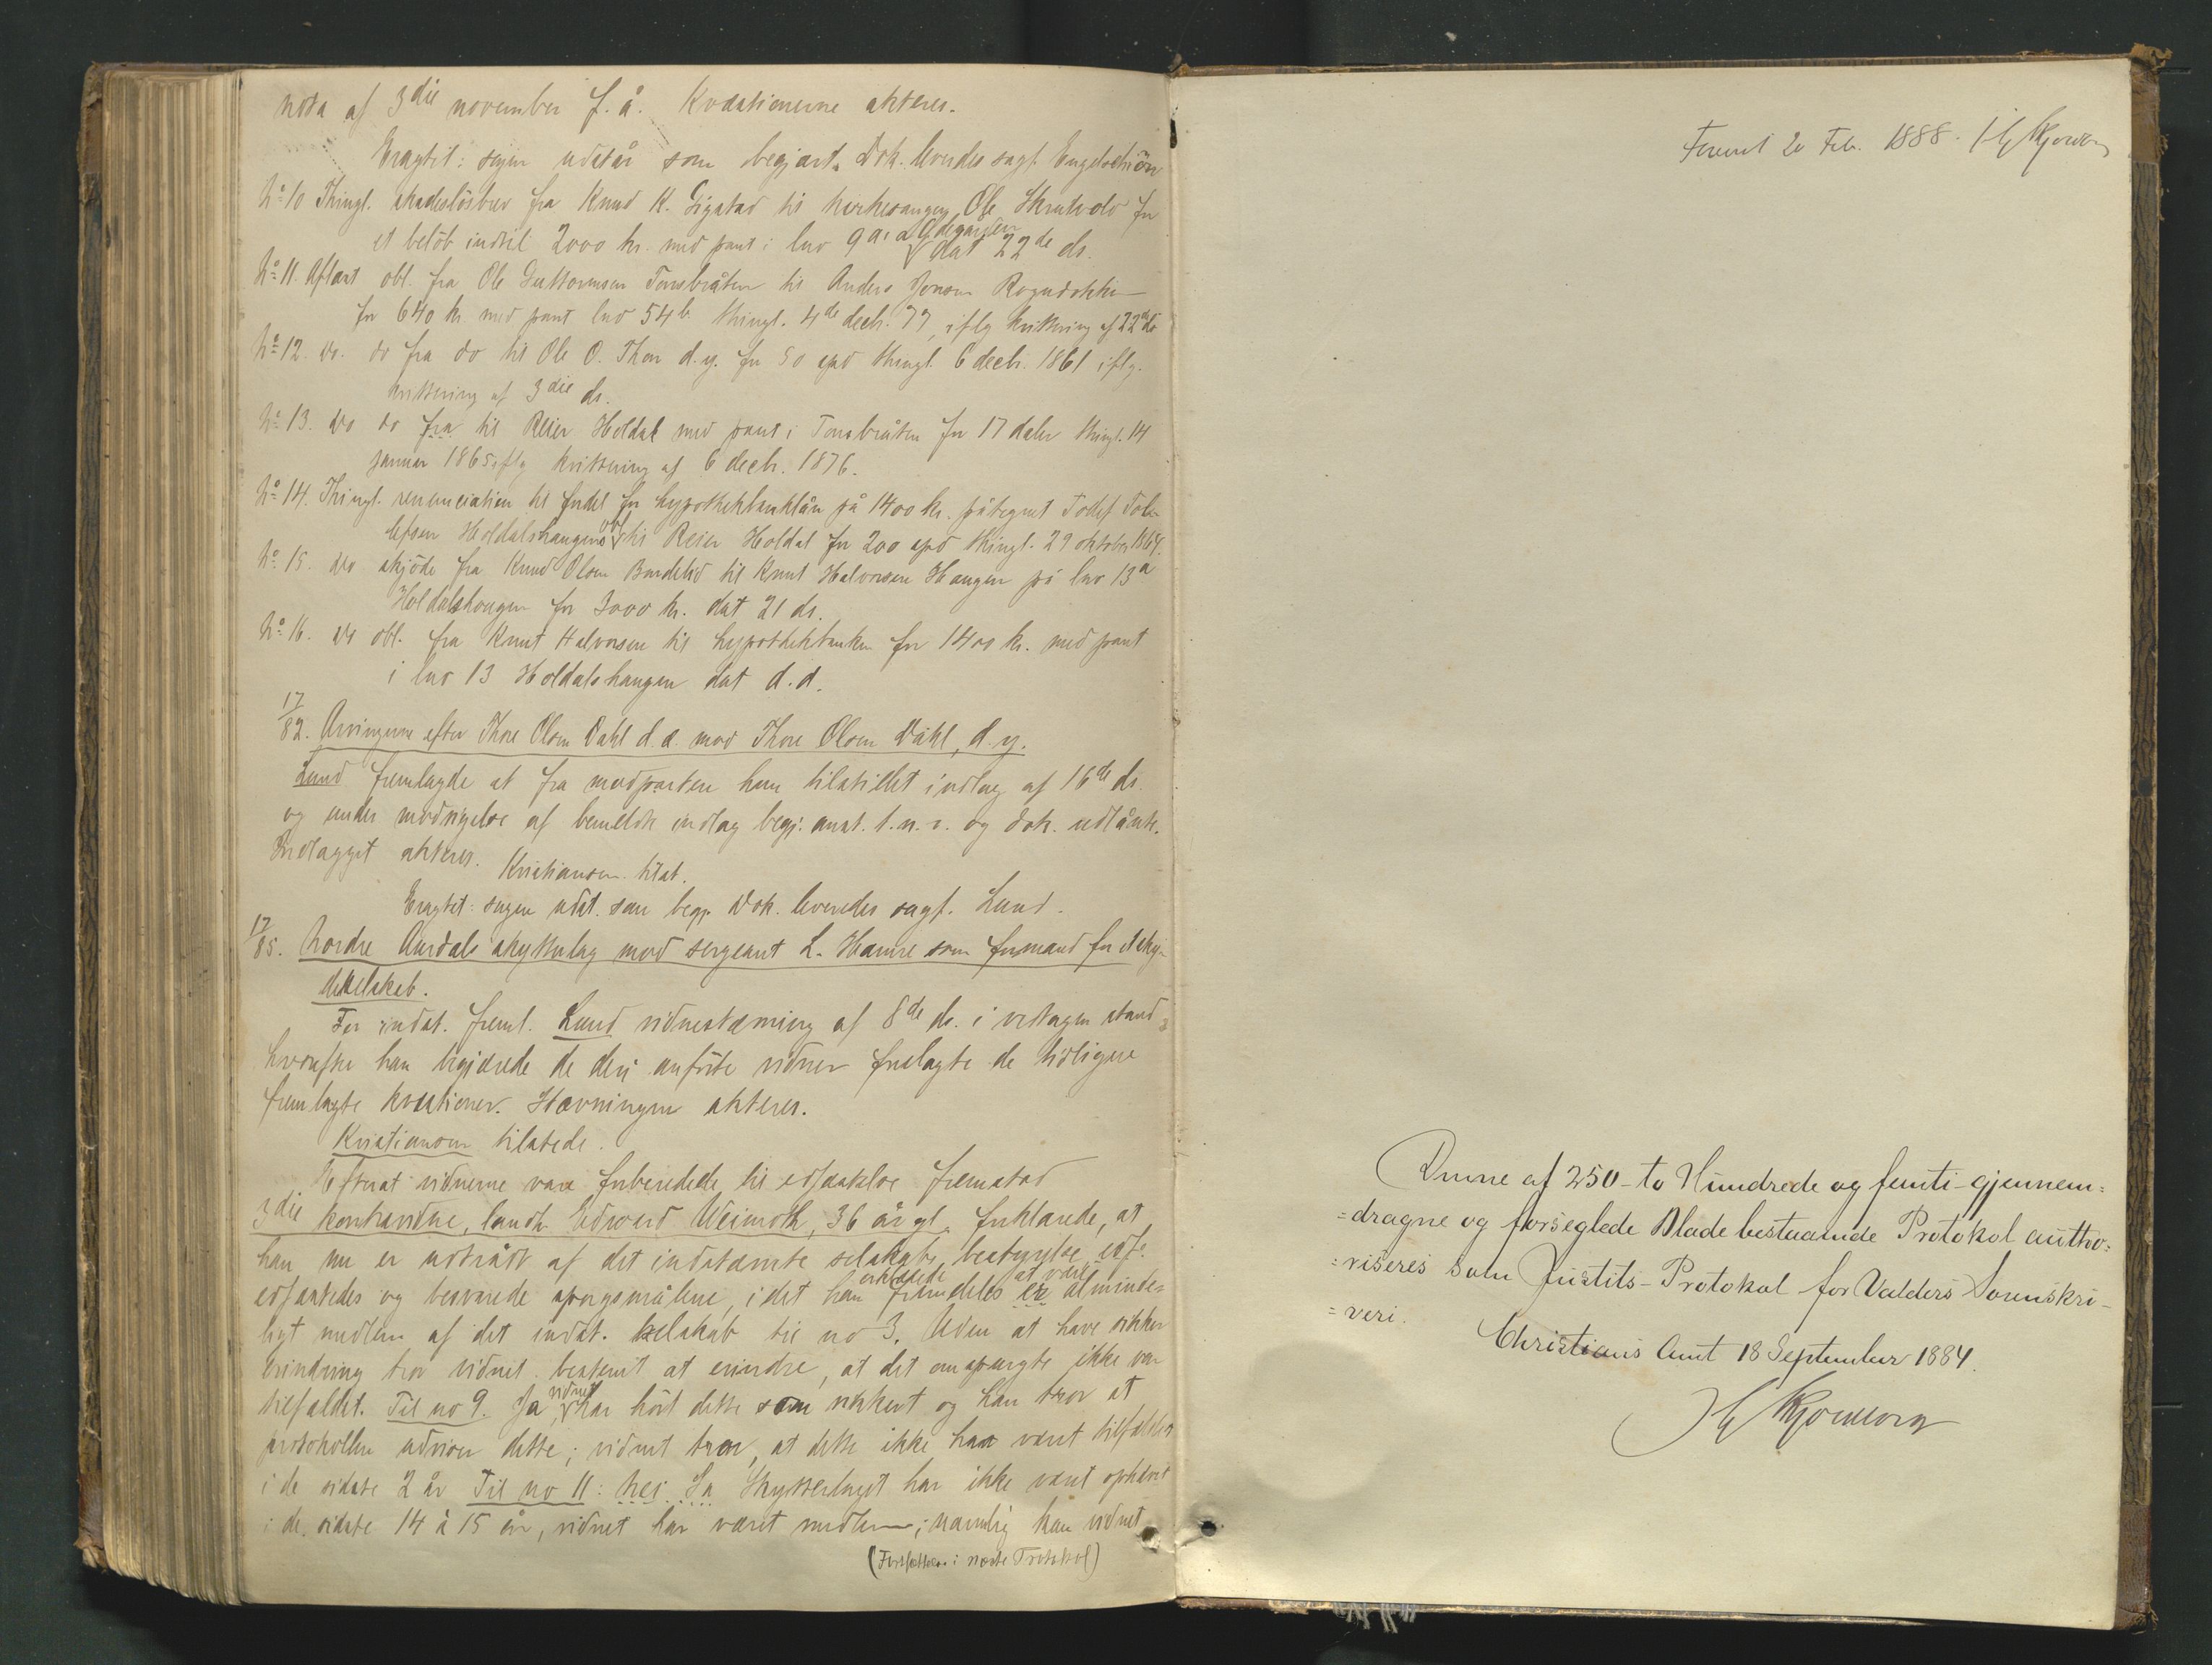 nota af 3die november f. å. Kvæstionerne akteres.
Eragtet: sagen udstår som begjært. Dok. leveredes sagf. Engelschiön
No 10 Thingl. skadeslösbrev fra Knud K. Gigstad til kirkesanger Ole Skrutvold for
et belöb indtil 2000 kr. med pant i lno 9 a i a Ødegården dat 22de ds.
No 11. Aflæst obl. fra Ole Guttormsen Tonsbråten til Anders Jonsen Rogndokken
for 640 kr. med pant lno 54 b thingl. 4de decbr. 77, iflg kvittering af 22de ds
No 12. do. do fra do til Ole O. Thon d.y. for 50 spd thingl. 6 decbr. 1861 iflg.
kvittering af 3die ds.
No 13. do do fra til Reier Holdal med pant i Tonsbråten for 17 daler thingl. 14
januar 1865 iflg kvittering af 6 decbr. 1876.
No 14. Thingl. renunciation til fordel for hypothekbanklån på 1400 kr. påtegnet Tollef Tol-
lefsen Holdalshaugens obl til Reier Holdal for 200 spd thingl. 29 oktober 1864.
No 15. do skjöde fra Knud Olsen Bundelid til Knut Halvorsen Haugen på lno 13 a
Holdalshaugen for 3000 kr. dat 21 ds.
No 16. do obl. fra Knut Halvorsen til hypothekbanken for 1400 kr. med pant
i lno 13 Holdalshaugen dat d.d.
17/82. Arvingerne efter Thore Olsen Dahl d.æ. mod Thore Olsen Dahl, d.y.
Lund fremlagde et fra modparten ham tilstillet indlæg af 16de ds.
og under modsigelse af bemeldte indlæg begj. anst. t.n.r. og dok. udlånte.
Indlægget akteres. Kristiansen tilst.
Eragtet: sagen udst. som begj. Dok. leveredes sagf. Lund.
17/85. Nordre Aurdals skytterlag mod sergeant L. Hamre som formand for et sky-
derselskab.
For indst. freml. Lund vidnestævning af 8de ds. i vedtagen stand
hvorefter han begjærede de deri anførte vidner forelagte de tidligere
fremlagte kvæstioner. Stævningen akteres.
Kristiansen tilstede.
Efterat vidnerne vare forberedede til edsaflæ fremstod
3die kontravidne, landh. Edvard Weinoth, 36 år gl. forklarede, at
han nu er udtrådt af det indstævnte selskabs bestyrelse, eds-
edfæstedes og besvarede spørgsmålene, idet han erklærede fremdeles at være er alminde-
ligt medlem af det indst. selskab til no 3. Uden at have sikker
erindring tror vidnet bestemt at erindre, at det omspurgte ikke var
tilfældet. Til no 9. Ja, vidnet har hört dette som sikkert og han tror at
protokollen udviser dette; vidnet tror, at dette ikke har været tilfældet
i de sidste 2 år Til no 11: nei. Ja Skytterlaget har ikke været ophævet
i de sidste 14 à 15 år, vidnet har været medlem; navnlig kan vidnet
(Fortsættes i næste Protokol)
Foreviist 20 Feb. 1888. H Kjerulf
Denne af 250 - to Hundrede og femti - gjennem=
=dragne og forseglede Blade bestaaende Protokol autho=
=riseres som Justits-Protokol for Valders Sorenskri-
=veri.
Christians Amt 18 September 1884.